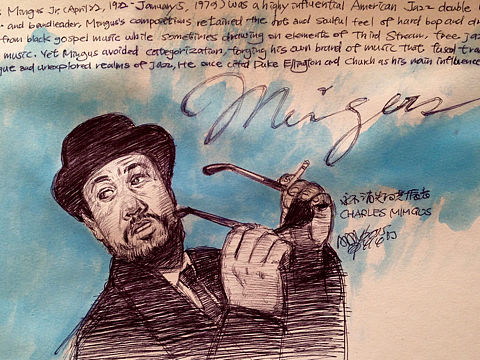 Mingus Jr. (April 22, 1922 - January 5, 1979) was a highly influential American Jazz double
and bandleader. Mingus's compositions retained the hot and soulful feel of hard bop and dr
from black gospel music while sometimes drawing on elements of Third Stream, free jaz
music. Yet Mingus avoided categorization, forging his own brand of music that fused tradi
que and unexplored realms of jazz, He once cited Duke Ellington and church as his main influence
Mingus
CHARLES MIMGUS